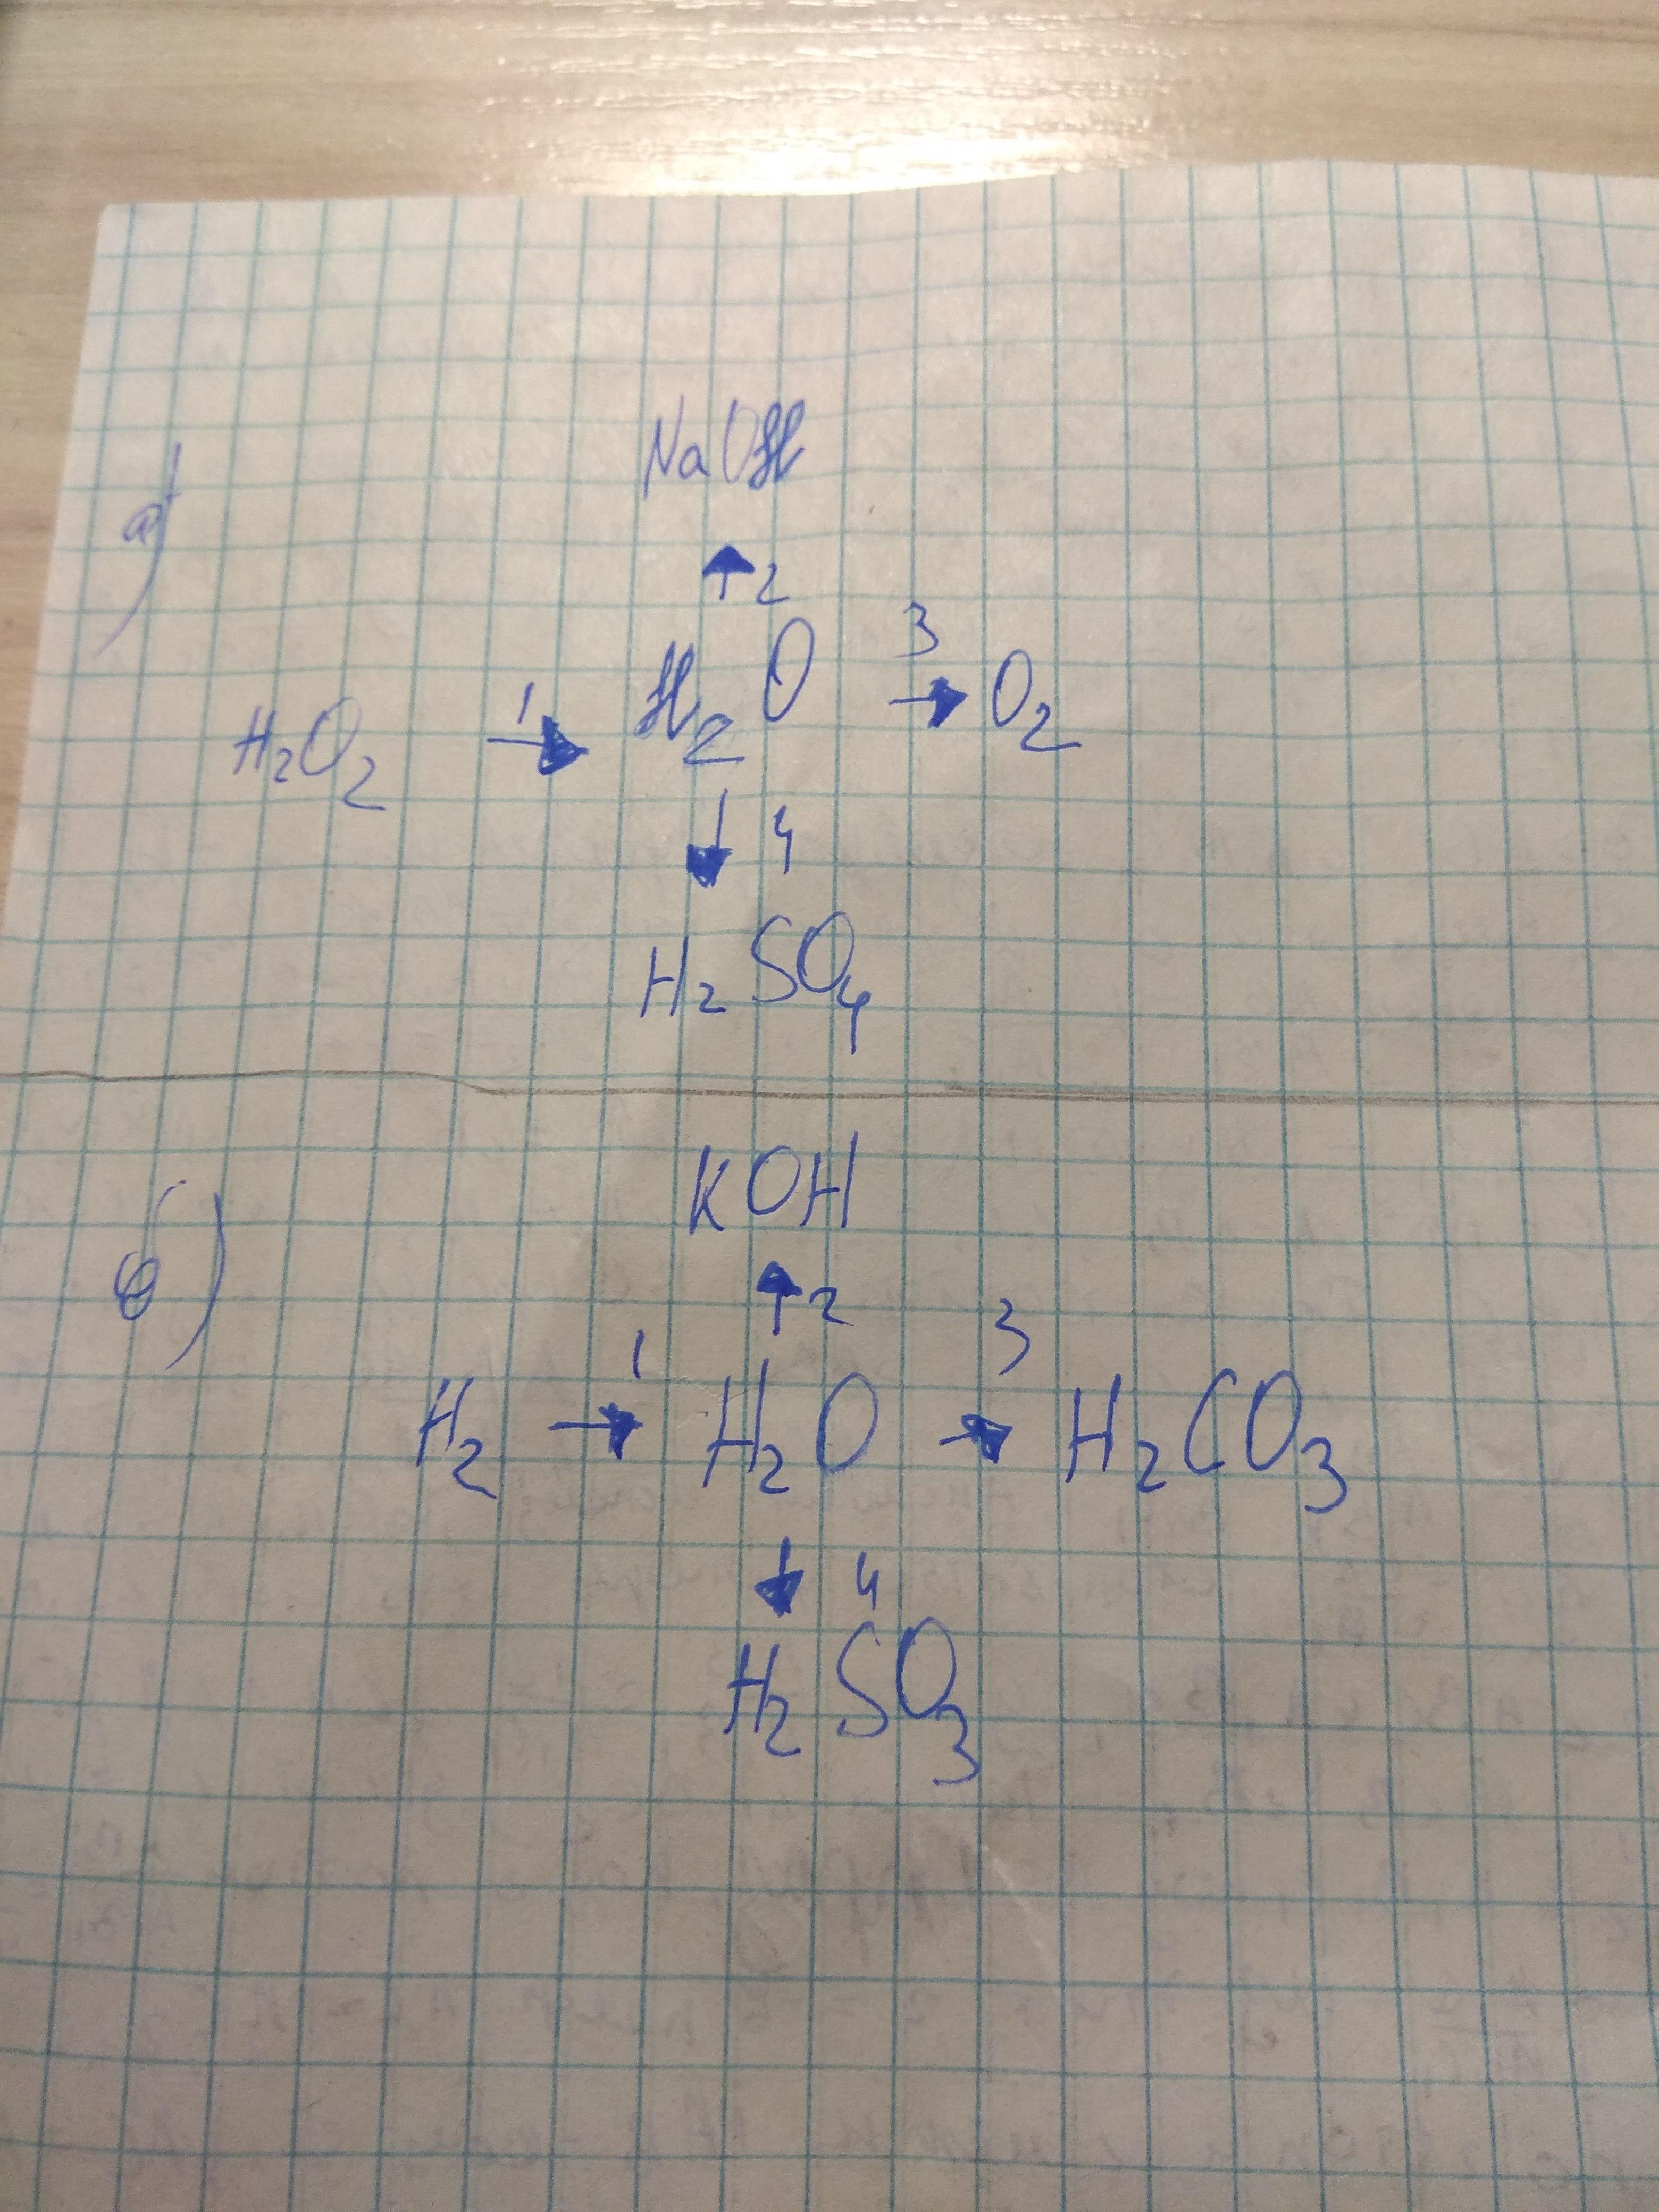 а)
NaOH
↑2
H₂O₂ →1 H₂O →3 O₂
↓ 4
H₂SO₄
б)
KOH
↑2
H₂ →1 H₂O →3 H₂CO₃
↓ 4
H₂SO₃